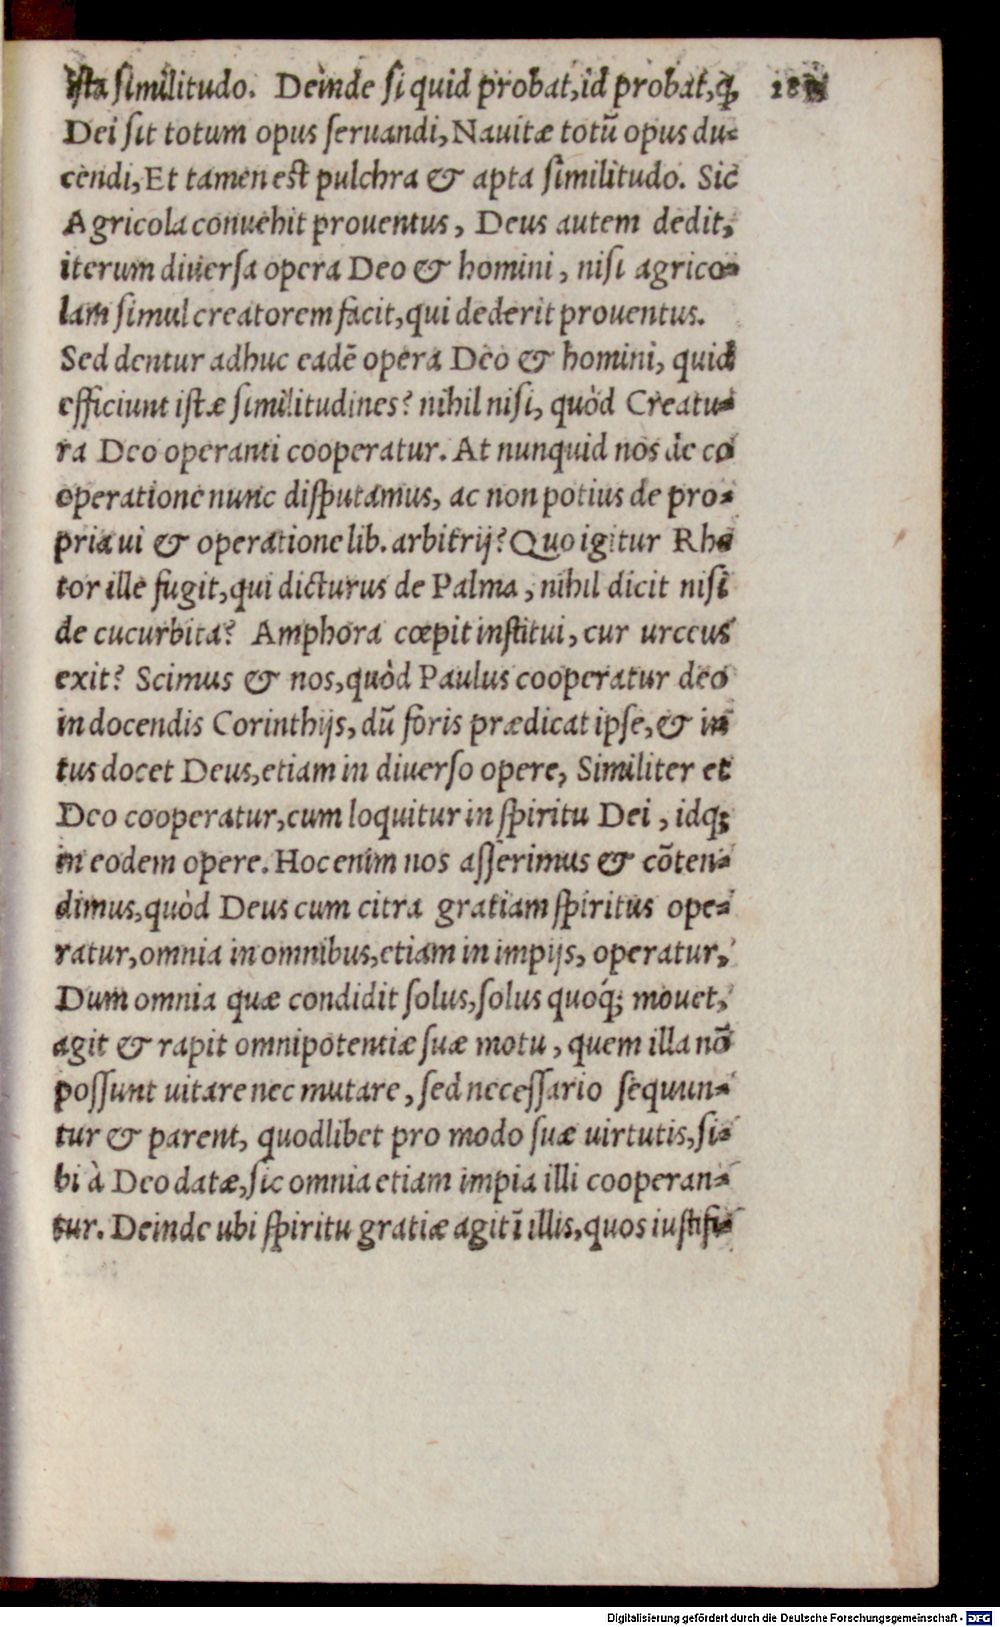 ista similitudo. Deinde si quid probat, id probat, ꝙ
Dei sit totum opus seruandi, Nauitæ totũ opus du-
cendi, Et tamen est pulchra & apta similitudo. Sic
Agricola conuehit prouentus, Deus autem dedit,
iterum diuersa opera Deo & homini, nisi agrico-
lam simul creatorem facit, qui dederit prouentus.
Sed dentur adhuc eadē opera Deo & homini, quid
efficiunt istæ similitudines? nihil nisi, quòd Creatu-
ra Deo operanti cooperatur. At nunquid nos de co
operatione nunc disputamus, ac non potius de pro-
pria ui & operatione lib. arbitrij? Quo igitur Rhe
tor ille fugit, qui dicturus de Palma, nihil dicit nisi
de cucurbita? Amphora cœpit institui, cur urceus
exit? Scimus & nos, quòd Paulus cooperatur deo
in docendis Corinthijs, dũ foris prædicat ipse, & in
tus docet Deus, etiam in diuerso opere, Similiter et
Deo cooperatur, cum loquitur in spiritu Dei, idq;
in eodem opere. Hoc enim nos asserimus & cõten-
dimus, quòd Deus cum citra gratiam spiritus ope-
ratur, omnia in omnibus, etiam in impijs, operatur,
Dum omnia quæ condidit solus, solus quoq; mouet,
agit & rapit omnipotentiæ suæ motu, quem illa nõ
possunt uitare nec mutare, sed necessario sequun-
tur & parent, quodlibet pro modo suæ uirtutis, si-
bi à Deo datæ, sic omnia etiam impia illi cooperan-
tur. Deinde ubi spiritu gratiæ agit ĩ illis, quos iustifi-
Digitalisierung gefördert durch die Deutsche Forschungsgemeinschaft - DFG